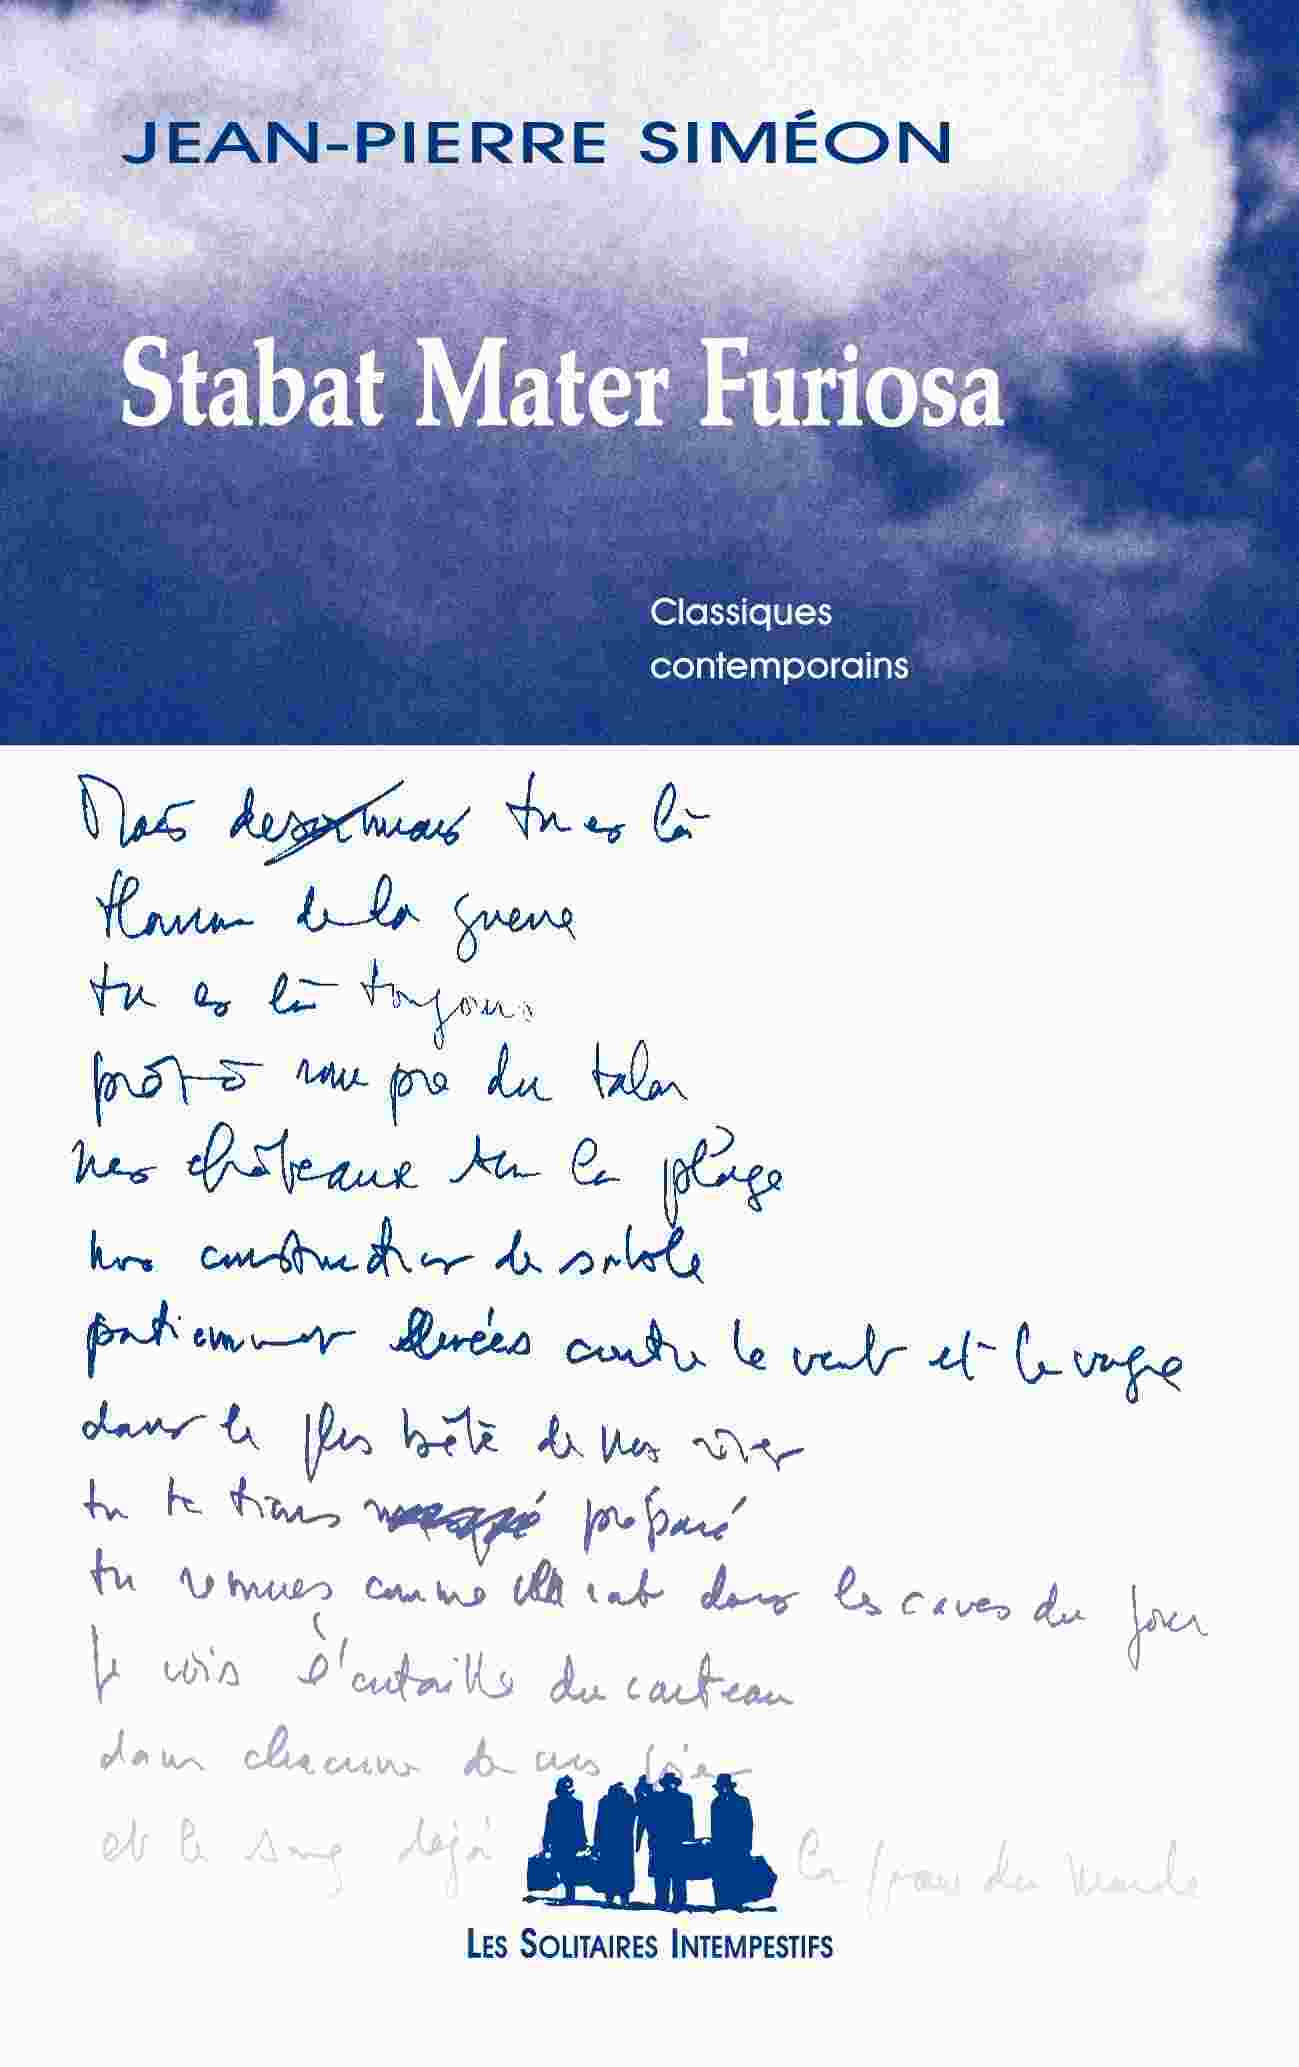 JEAN-PIERRE SIMÉON
Stabat Mater Furiosa
Classiques
contemporains
Mais desormais tu es là
Homme de la guerre
tu es là toujours
prêt à rompre du talon
nos châteaux sur la plage
nos constructions de sable
patiemment élevées contre le vent et la vague
dans le plus bêta de nos rires
tu te tiens préparé
tu remues comme rat dans les caves du jour
je vois l'entaille du couteau
dans chacune de nos
et le sang déjà la peau du monde
LES SOLITAIRES INTEMPESTIFS